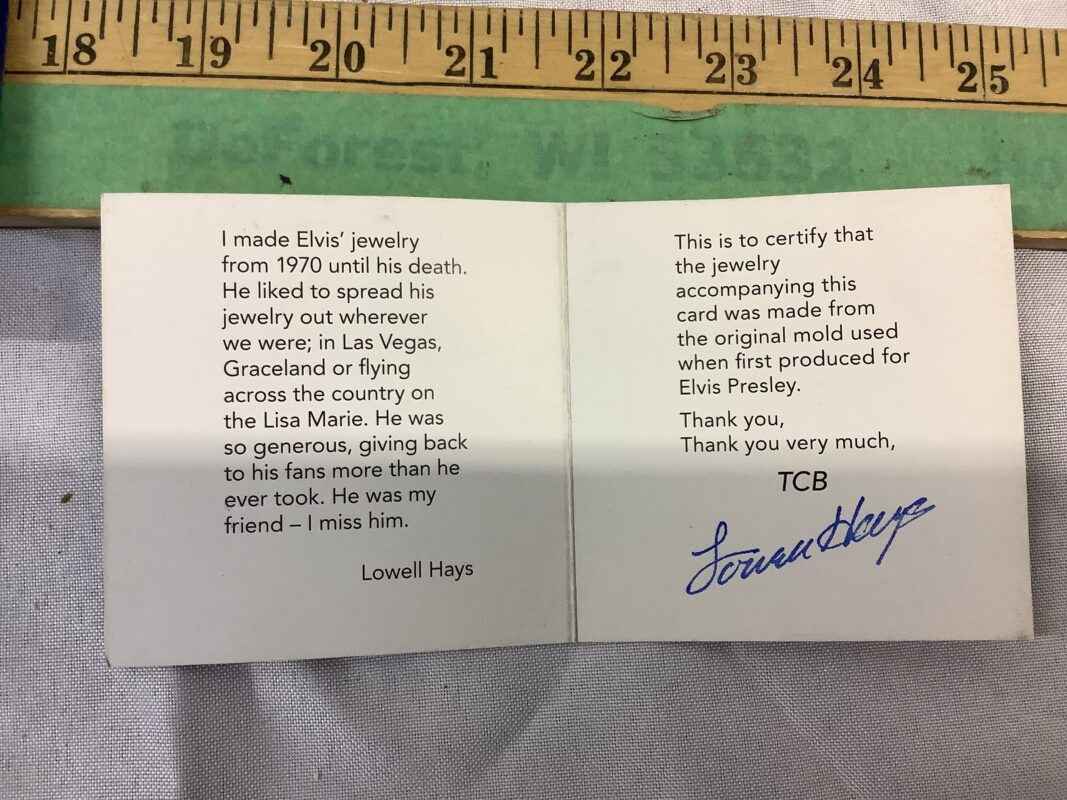 18 19 20 21 22 23 24 25
DeForest, WI
I made Elvis' jewelry
from 1970 until his death.
He liked to spread his
jewelry out wherever
we were; in Las Vegas,
Graceland or flying
across the country on
the Lisa Marie. He was
so generous, giving back
to his fans more than he
ever took. He was my
friend – I miss him.
Lowell Hays
This is to certify that
the jewelry
accompanying this
card was made from
the original mold used
when first produced for
Elvis Presley.
Thank you,
Thank you very much,
TCB
Lowell Hays